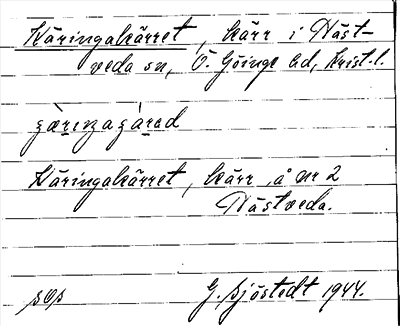 Käringakärret, kärr i Näst-
veda sn, Ö. Göinge hd, Krist. l.
Käringakärret, kärr, å nr 2
Nästveda.
sOs G. Sjöstedt 1944.